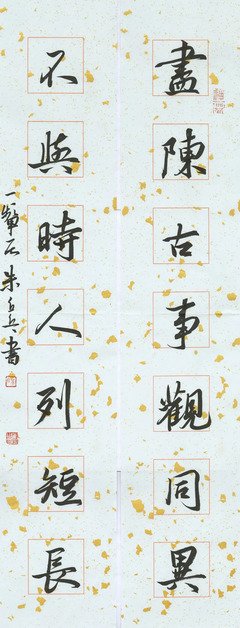 盡陳古事觀同異
不與時人列短長
石朱兵書